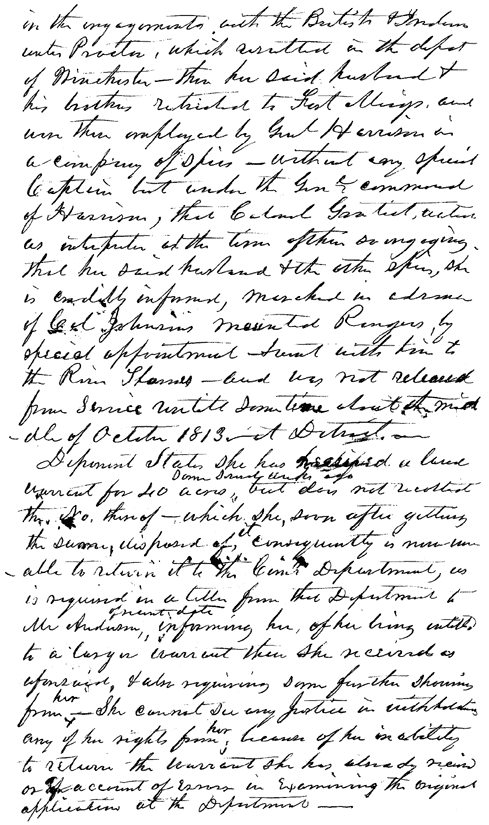 in the engagements with the British & Indians
under Proctor, which resulted in the defeat
of Winchester — then her said husband &
his brothers retreated to Fort Meigs, and
were then employed by Genl Harrison in
a company of spies — without any special
Captain but under the Genl command
of Harrison, that Colonel Gratiot, acted
as interpreter at the time of their so engaging.
that her said husband & the other spies, she
is credibly informed, marched in advance
of Col Johnsons mounted Rangers, by
special appointment & went with him to
the River Thames — and was not released
from Service untill sometime about the mid
-dle of October 1813 — at Detroit. —
Deponent States she has received a land
warrant for 40 acres, some twenty weeks ago but does not recollect
the No. thereof — which she, soon after getting
the same, disposed of it, & consequently is now un
-able to return it to the Department, as
is required in a letter from that Department to
Mr Anderson, of recent date informing her, of her being entitled
to a larger warrant than she received as
aforesaid, & also requiring some further showing
from her — She cannot see any Justice in withholding
any of her rights from her, because of her inability
to return the warrant she has already recied
or account of Errors in Examining the original
application at the Department —